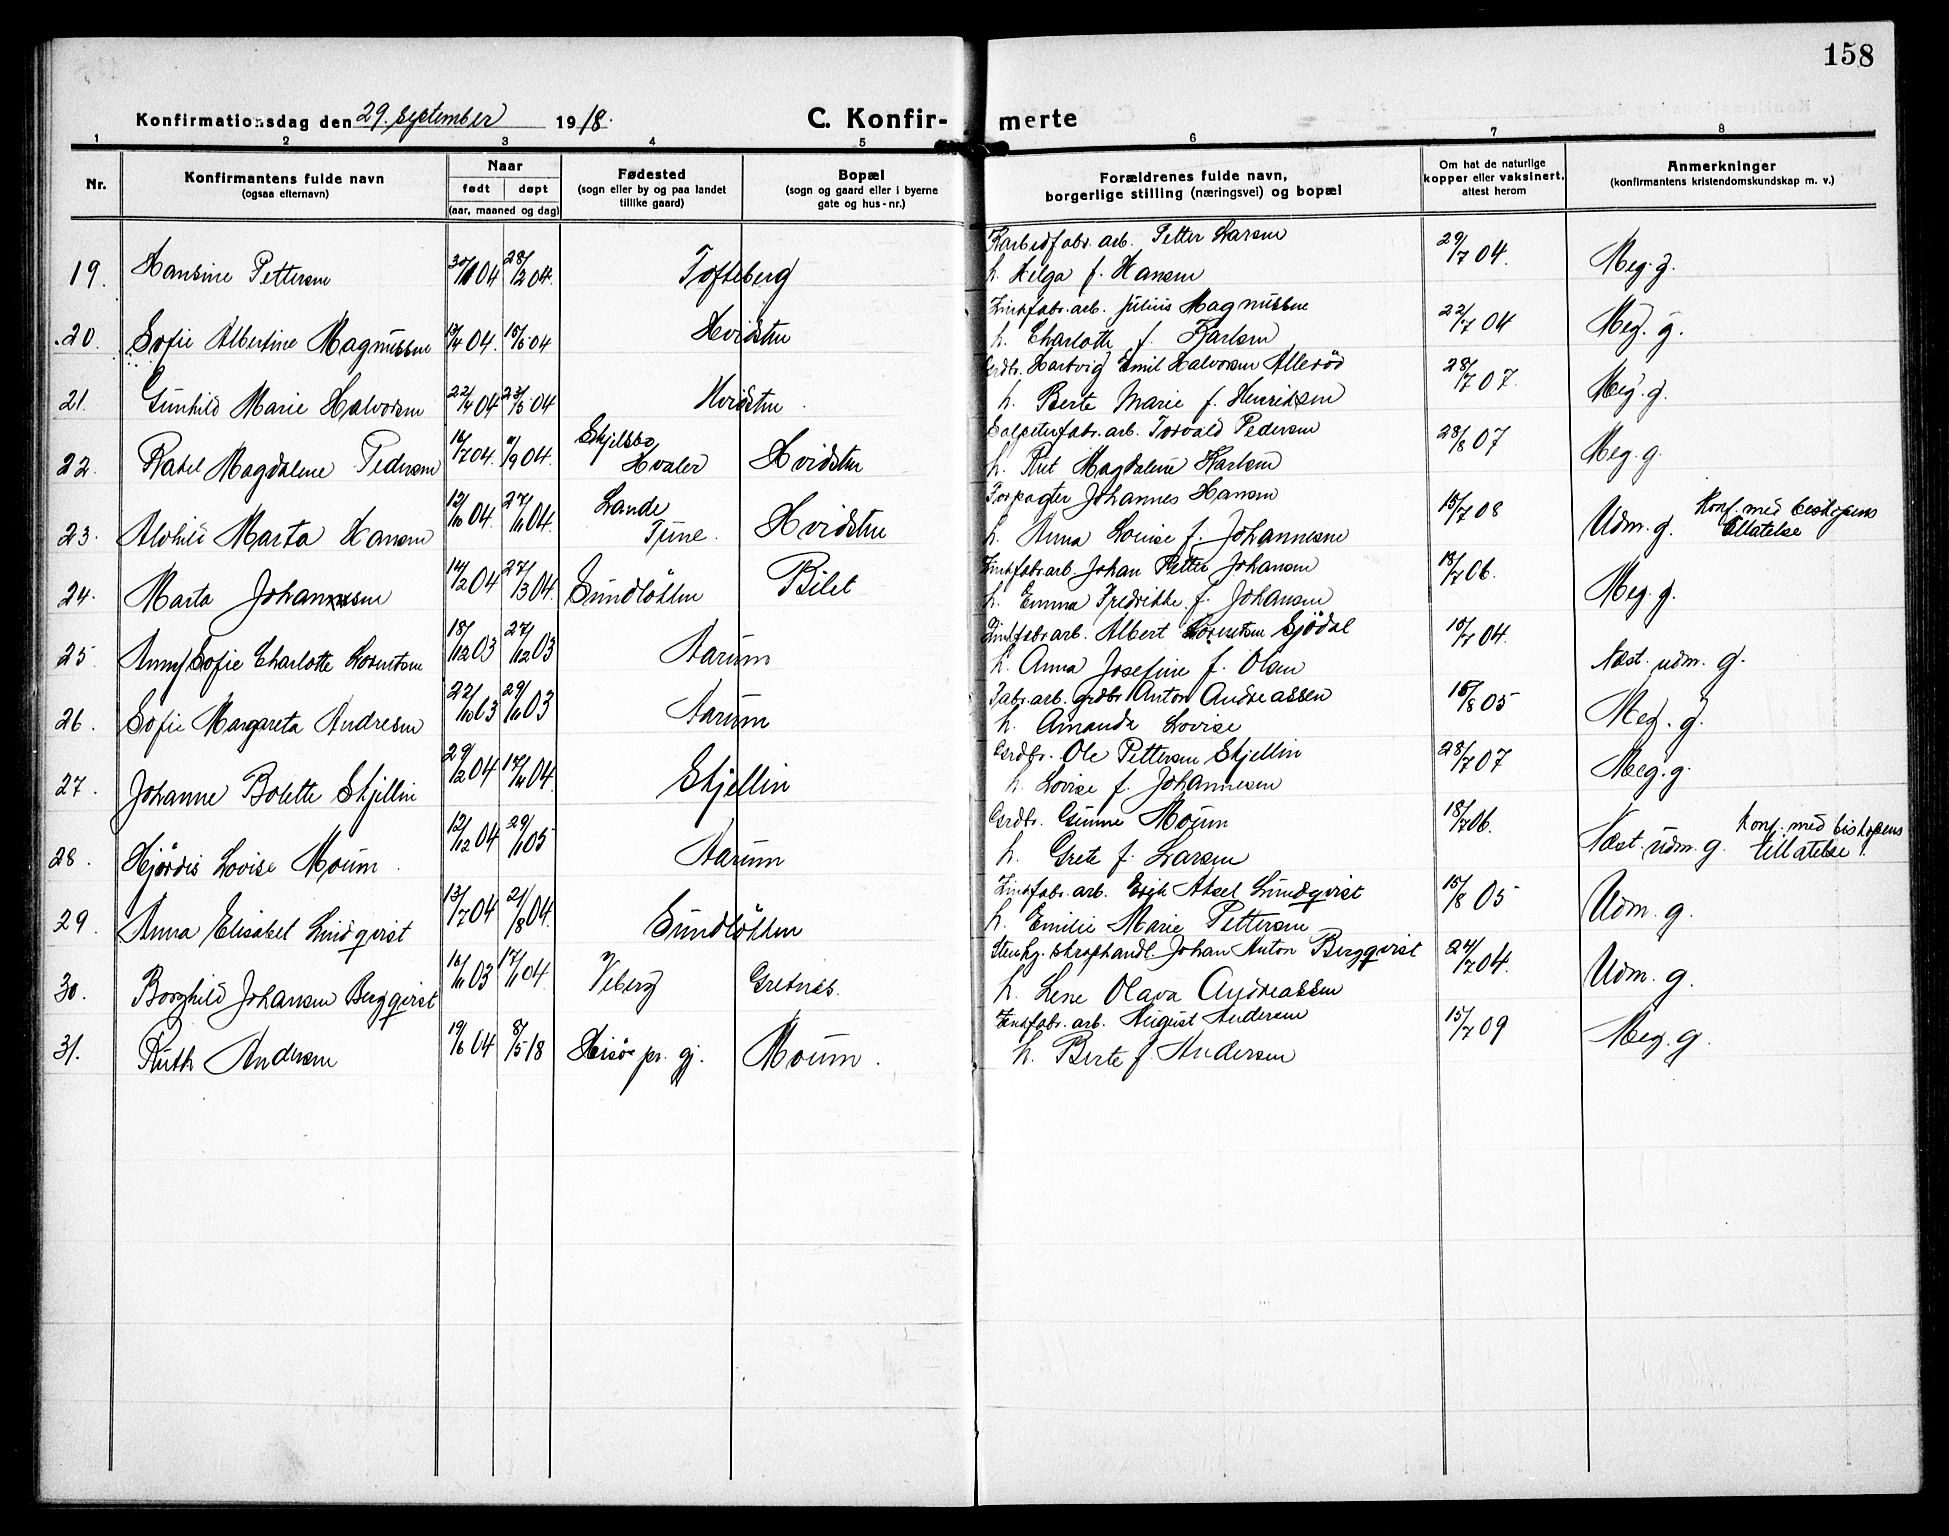 158
Konfirmationsdag den 29. september 1918. C. Konfir- merte
1 2 3 4 5 6 7 8
Nr. Konfirmantens fulde navn (ogsaa efternavn) Naar født døpt (aar, maaned og dag) Fødested (sogn eller by og paa landet tillike gaard) Bopæl (sogn og gaard eller i byerne gate og hus-nr.) Forældrenes fulde navn, borgerlige stilling (næringsvei) og bopæl Om hat de naturlige kopper eller vaksinert, attest herom Anmerkninger (konfirmantens kristendomskundskap m. v.)
Karbidfabr. arb. Petter Larsen
19. Hansine Pettersen 04 28/12 04. Tofteberg h. Helga f. Hansen 29/7 04. Meg. g.
Zinkfabr. arb. Julius Magnussen
20. Sofie Albertine Magnussen 04. 15/5 04 Hvidsten h. Charlotte f. Karlsen 22/7 04 Meg. g.
Grdbr. Hartvig Emil Halvorsen Allerød
21. Gunhild Marie Halvorsen 22/4 04 23/5 04 Hvidsten h. Berte Marie f. Henriksen 28/7 07. Meg. g.
Salpeterfabr. arb. Torvald Pedersen
22. Rakel Magdalene Pedersen 16/7 04. 11/9 04. Skjelsbo Hvaler Hvidsten h. Rut Magdalene Karlsen 28/8 07 Meg. g.
Forpagter Johannes Hansen
23. Alvhild Marta Hansen 12/10 04. 27/11 04. Lande Tune. Hvidsten h. Anna Louise f. Johannesen 15/7 08 Udm. g. Konf. med biskopens tillatelse
Zinkfabr. arb. Johan Petter Johansen
24. Marta Johannesen 14/2 04 27/3 04. Sundløkken Bilet h. Emma Fredrikke f. Johansen 18/7 06. Meg. g.
Zinkfabr. arb. Albert Lorentsen Sjødal
25. Anny Sofie Charlotte Lorentsen 18/12 03 27/12 03 Aarum h. Anna Josefine f. Olsen 15/7 04. Næst. udm. g.
Fabr. arb. grdbr. Anton Andreassen
26. Sofie Margareta Andresen 22/10 03 29/11 03 Aarum h. Amanda Lovise 15/8 05 Meg. g.
Grdbr. Ole Pettersen Skjellin
27. Johanne Bolette Skjellin 29/2 04 17/4 04. Skjellin h. Lovise f. Johannesen 28/7 07 Meg. g.
Grdbr. Gunne Moum
28. Hjørdis Lovise Moum. 12/12 04 29/1 05 Aarum h. Grete f. Larsen 18/7 06. Næst. udm. g. Konf. med biskopens tillatelse.
Zinkfabr. arb. Erik Aksel Lundqvist
29. Anna Elisabet Lindqvist 13/7 04 21/8 04. Sundløkken h. Emilie Marie Pettersen 15/8 05 Udm. g.
Stenhg. skraphandl. Johan Anton Bergqvist
30. Borghild Johansen Bergqvist 16/11 03 17/1 04 Veberg Gretnes. h. Lene Olava Andreassen 24/7 04. Udm. g.
Zinkfabr. arb. August Andersen
31. Ruth Andersen 19/6 04 8/5 18 Hisø pr. gj. Moum. h. Berte f. Andersen 15/7 09 Meg. g.